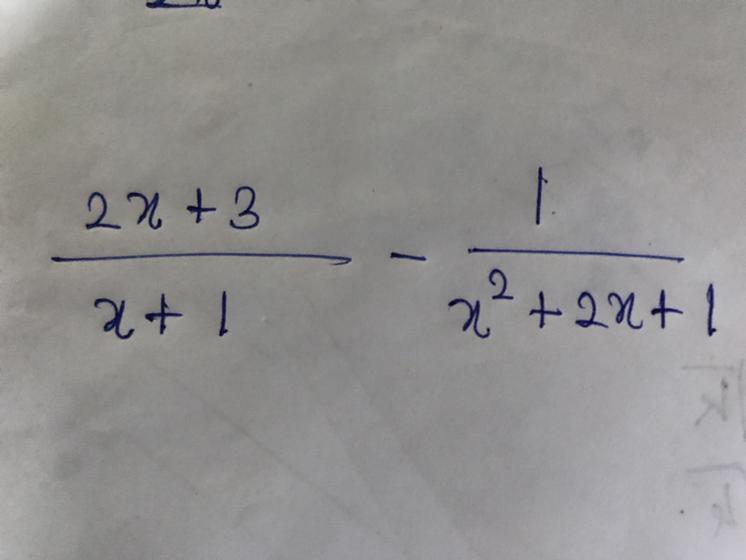 2x + 3 / x + 1 - 1 / x² + 2x + 1